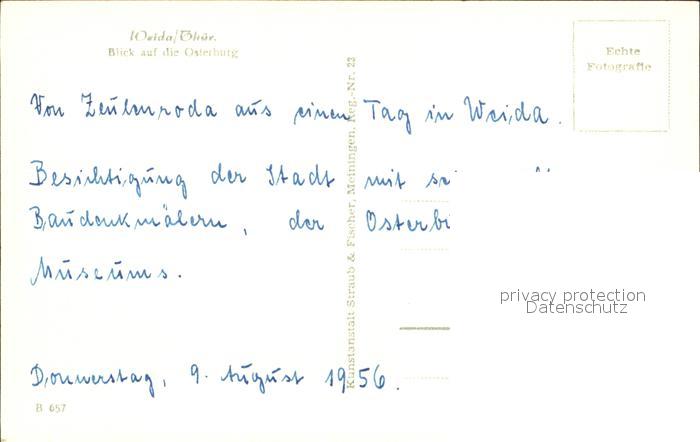 Weida/Thür.
Blick auf die Osterburg
Echte
Fotografie
Von Zeulenroda aus einen Tag in Weida.
Besichtigung der Stadt mit
Baudenkmälern, der
Museums.
Donnerstag, 9. August 1956.
B 657
Kunstanstalt Straub & Fischer, Meiningen, Reg.-Nr. 23
privacy protection
Datenschutz